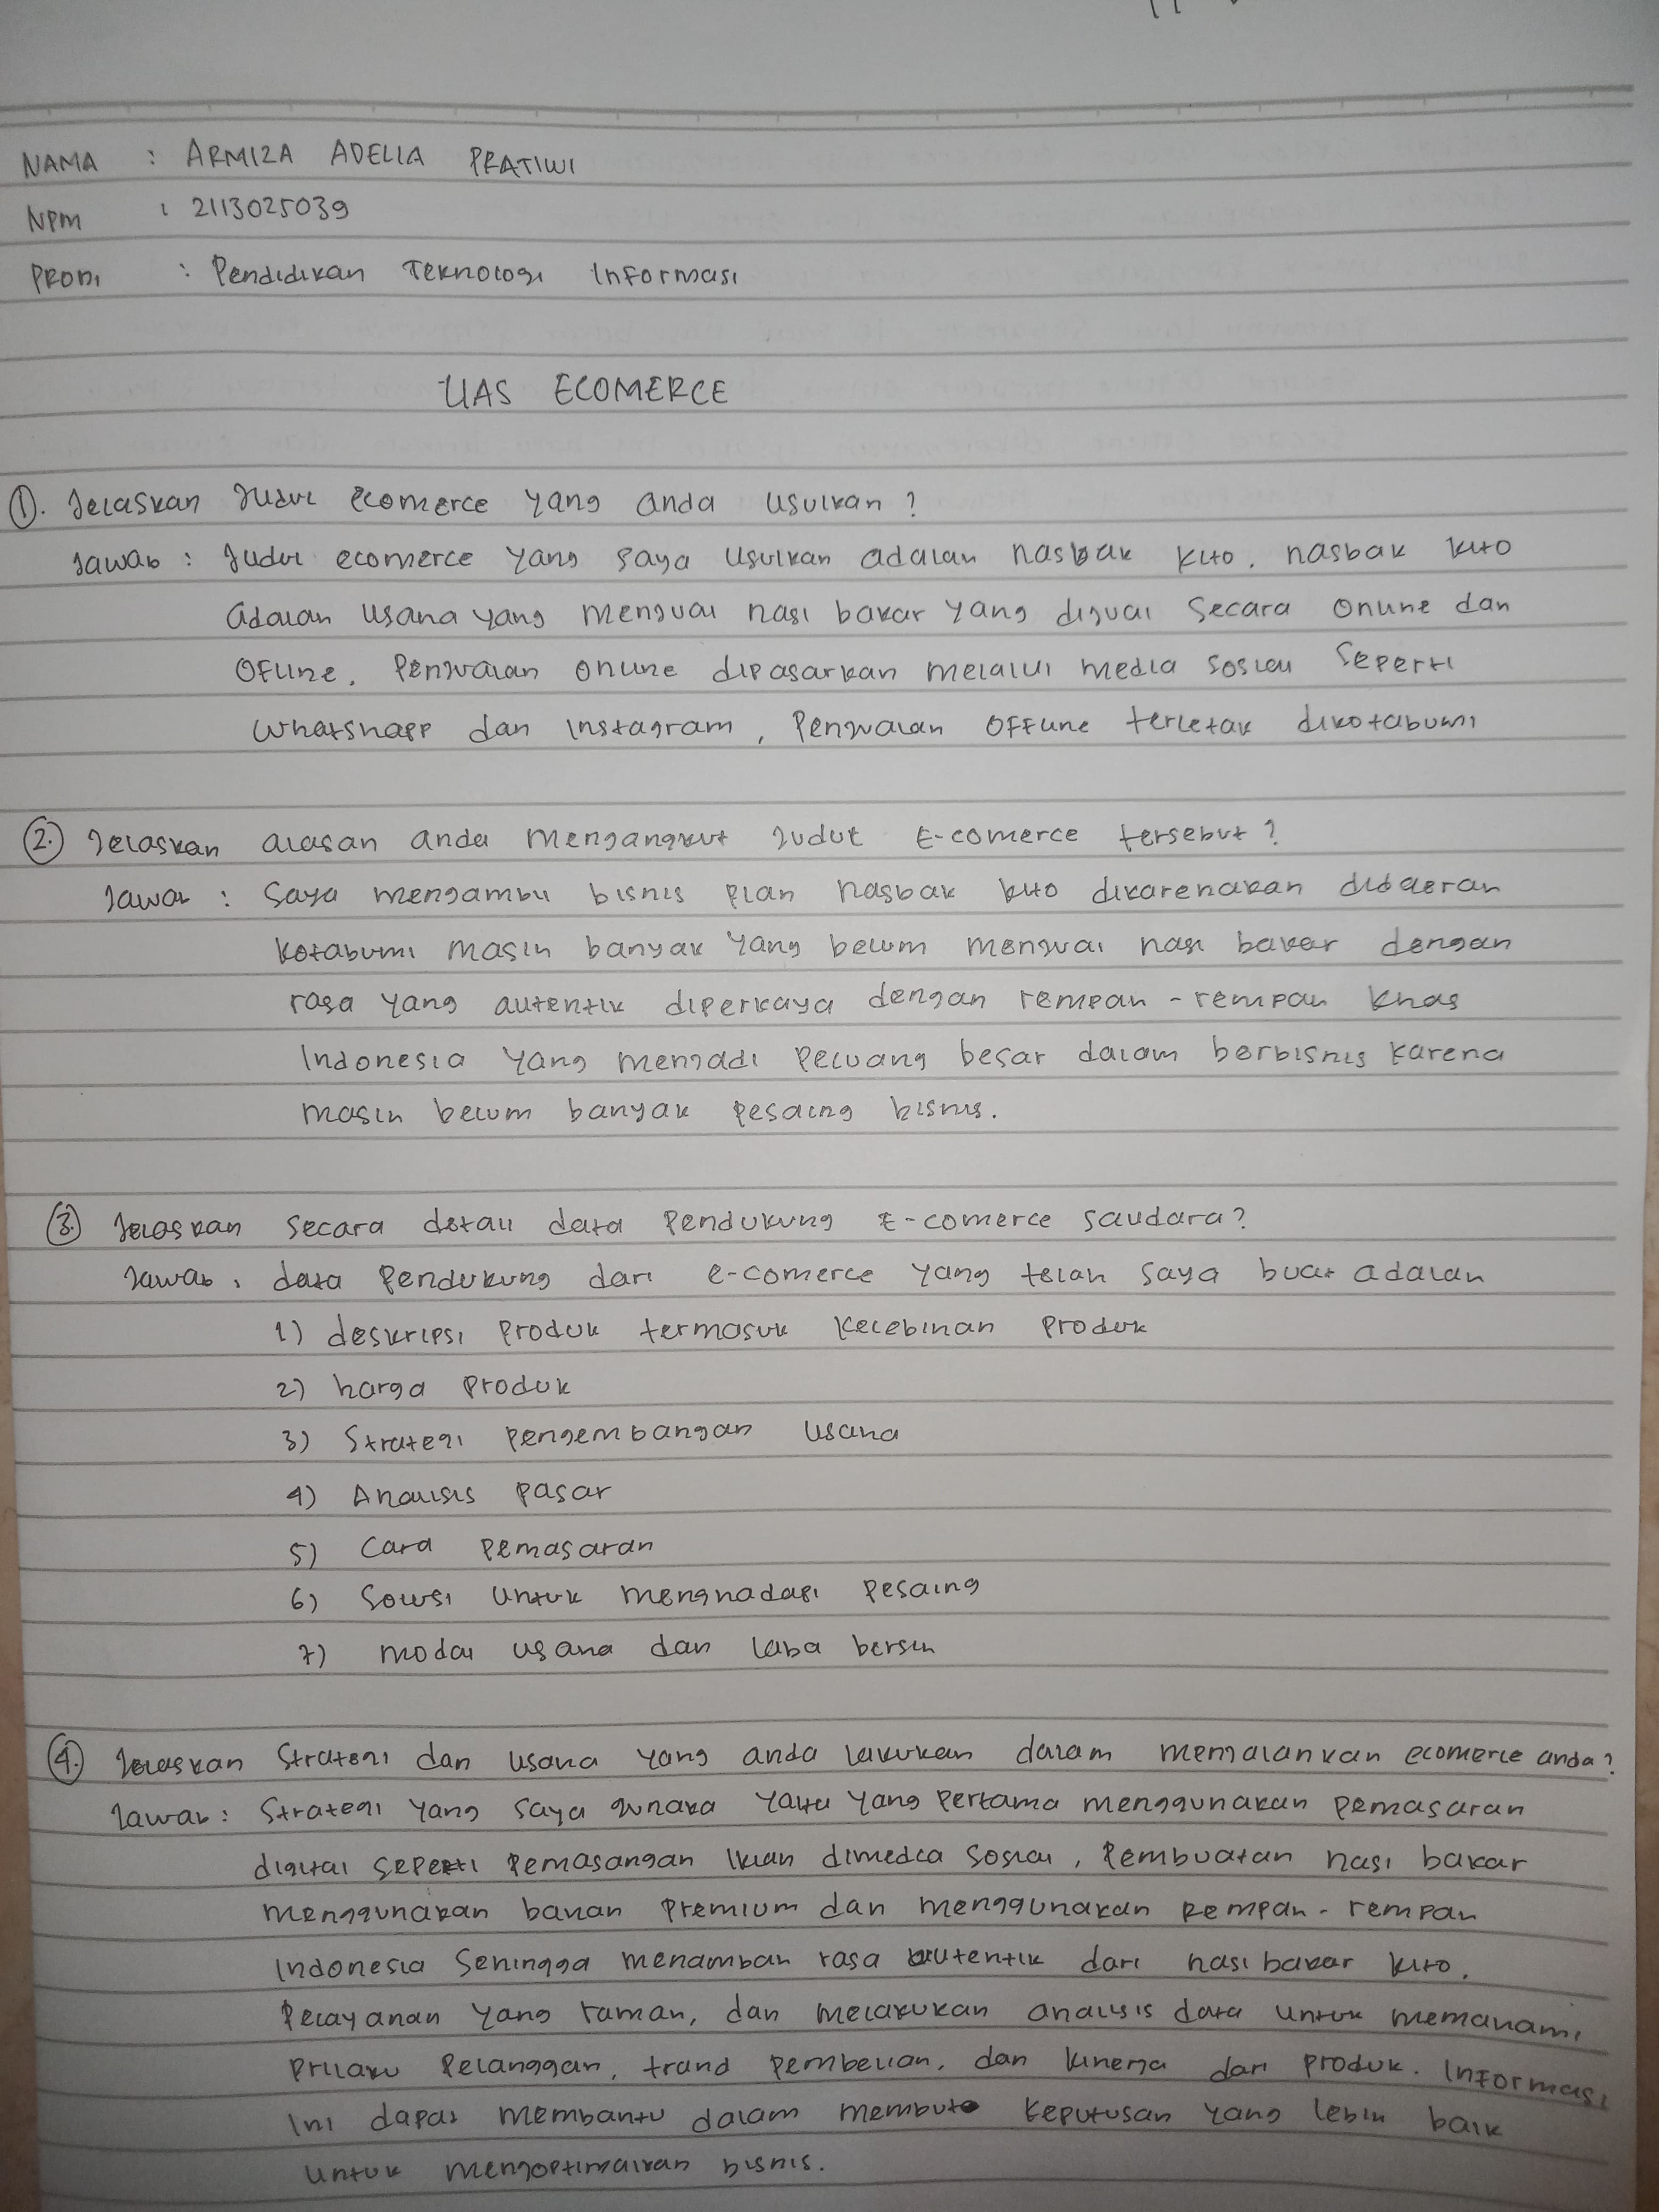 NAMA : ARMIZA ADELIA PRATIWI
NPM : 2113025039
PRODI : Pendidikan Teknologi Informasi
UAS ECOMERCE
1. Jelaskan Judul ecomerce yang anda usulkan ?
Jawab : Judul ecomerce yang saya usulkan adalah nasbak kito. nasbak kito
adalah usaha yang menjual nasi bakar yang dijual secara online dan
ofline. Penjualan online dipasarkan melalui media sosial seperti
whatshapp dan instagram, Penjualan offline terletak dikotabumi
2. Jelaskan alasan anda mengangkut judul E-comerce tersebut ?
Jawab : Saya mengambil bisnis plan nasbak kito dikarenakan didaerah
kotabumi masih banyak yang belum menjual nasi bakar dengan
rasa yang autentik diperkaya dengan rempah - rempah khas
Indonesia yang menjadi peluang besar dalam berbisnis karena
masih belum banyak pesaing bisnis.
3. Jelaskan secara detail data pendukung E-comerce saudara?
Jawab : data pendukung dari e-comerce yang telah saya buat adalah
1) deskripsi produk termasuk kelebihan produk
2) harga produk
3) Strategi pengembangan usaha
4) Analisis pasar
5) Cara pemasaran
6) Solusi untuk menghadapi pesaing
7) modal usaha dan laba bersih
4. Jelaskan strategi dan usaha yang anda lakukan dalam menjalankan ecomerce anda?
Jawab : Strategi yang saya gunaka yaitu yang pertama menggunakan pemasaran
digital seperti pemasangan iklan dimedia sosial, Pembuatan nasi bakar
menggunakan bahan premium dan menggunakan rempah - rempah
indonesia sehingga menambah rasa autentik dari nasi bakar kito.
Pelayanan yang ramah, dan melakukan analisis data untuk memahami
prilaku pelanggan, trand pembelian, dan kinerja dari produk. Informasi
ini dapat membantu dalam membuto keputusan yang lebih baik
untuk mengoptimalkan bisnis.